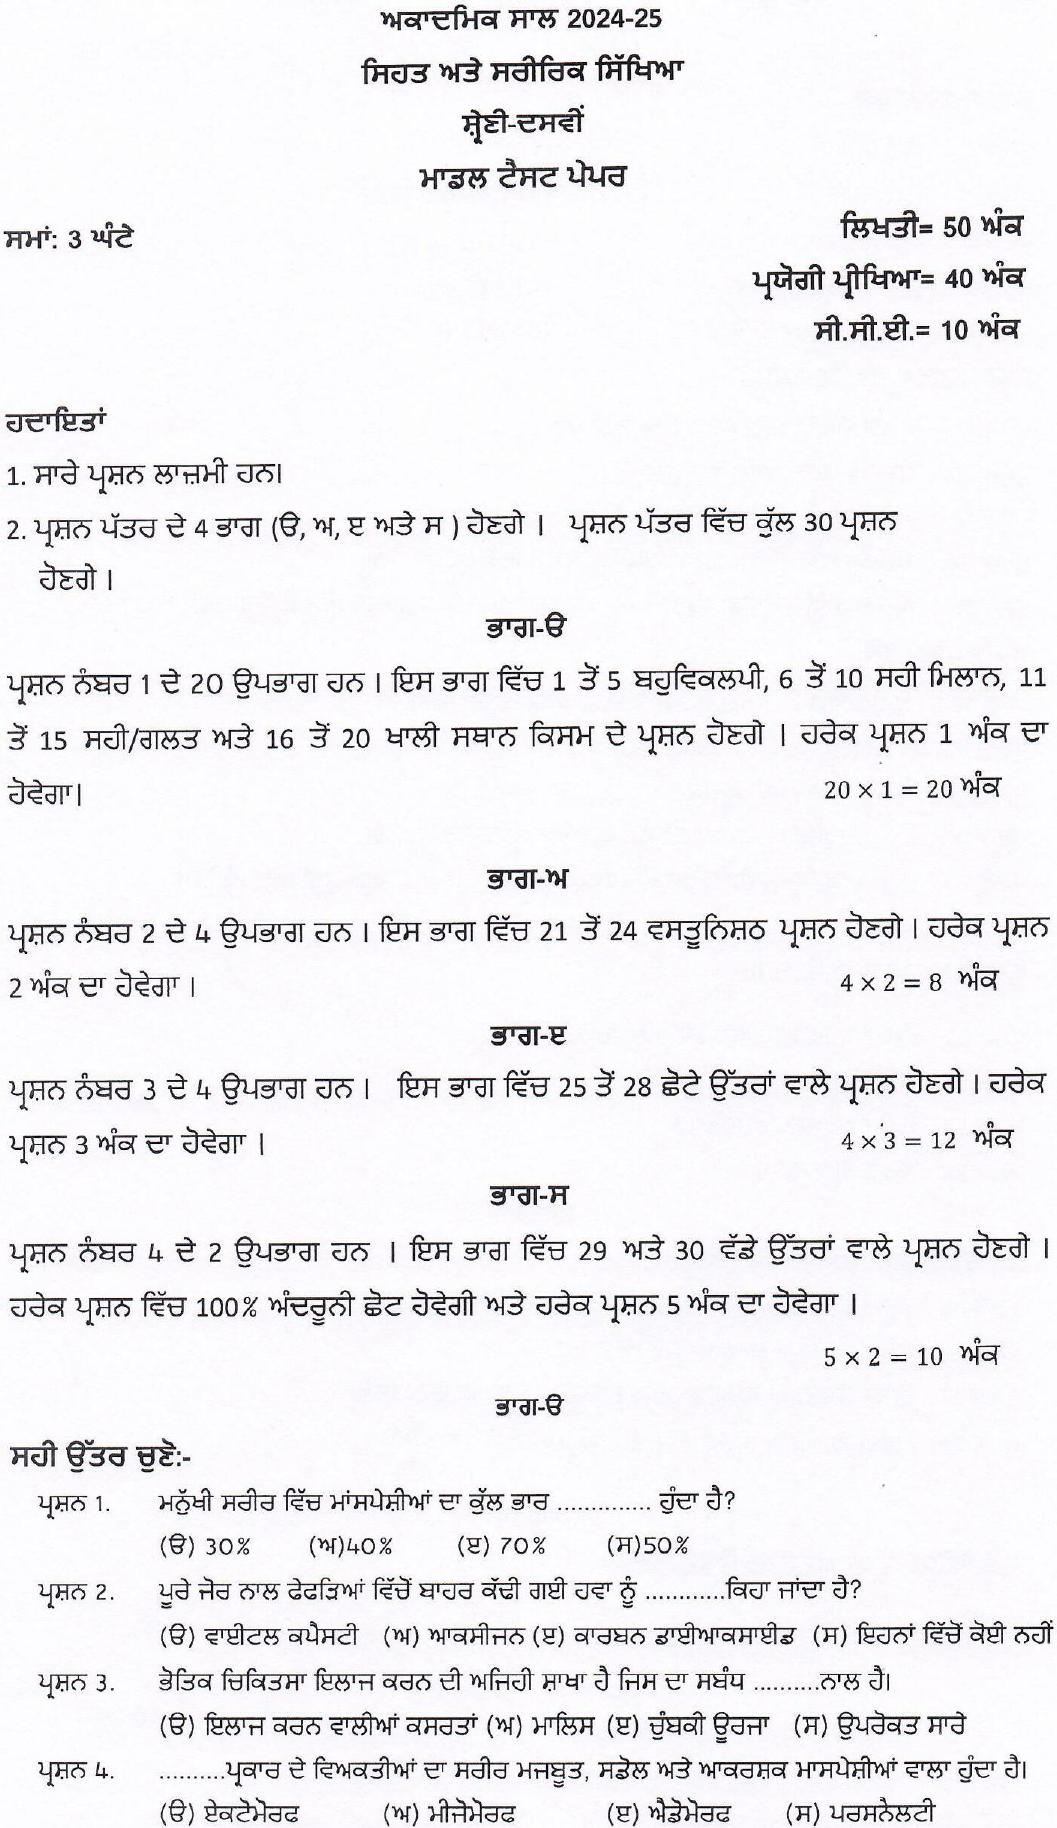 ਅਕਾਦਮਿਕ ਸਾਲ 2024-25
ਸਿਹਤ ਅਤੇ ਸਰੀਰਿਕ ਸਿੱਖਿਆ
ਸ਼੍ਰੇਣੀ-ਦਸਵੀਂ
ਮਾਡਲ ਟੈਸਟ ਪੇਪਰ
ਸਮਾਂ: 3 ਘੰਟੇ
ਲਿਖਤੀ= 50 ਅੰਕ
ਪ੍ਰਯੋਗੀ ਪ੍ਰੀਖਿਆ= 40 ਅੰਕ
ਸੀ.ਸੀ.ਈ.= 10 ਅੰਕ
ਹਦਾਇਤਾਂ
1. ਸਾਰੇ ਪ੍ਰਸ਼ਨ ਲਾਜ਼ਮੀ ਹਨ।
2. ਪ੍ਰਸ਼ਨ ਪੱਤਰ ਦੇ 4 ਭਾਗ (ੳ, ਅ, ੲ ਅਤੇ ਸ ) ਹੋਣਗੇ । ਪ੍ਰਸ਼ਨ ਪੱਤਰ ਵਿੱਚ ਕੁੱਲ 30 ਪ੍ਰਸ਼ਨ
ਹੋਣਗੇ ।
ਭਾਗ-ੳ
ਪ੍ਰਸ਼ਨ ਨੰਬਰ 1 ਦੇ 20 ਉਪਭਾਗ ਹਨ । ਇਸ ਭਾਗ ਵਿੱਚ 1 ਤੋਂ 5 ਬਹੁਵਿਕਲਪੀ, 6 ਤੋਂ 10 ਸਹੀ ਮਿਲਾਨ, 11
ਤੋਂ 15 ਸਹੀ/ਗਲਤ ਅਤੇ 16 ਤੋਂ 20 ਖਾਲੀ ਸਥਾਨ ਕਿਸਮ ਦੇ ਪ੍ਰਸ਼ਨ ਹੋਣਗੇ । ਹਰੇਕ ਪ੍ਰਸ਼ਨ 1 ਅੰਕ ਦਾ
ਹੋਵੇਗਾ। 20 × 1 = 20 ਅੰਕ
ਭਾਗ-ਅ
ਪ੍ਰਸ਼ਨ ਨੰਬਰ 2 ਦੇ 4 ਉਪਭਾਗ ਹਨ । ਇਸ ਭਾਗ ਵਿੱਚ 21 ਤੋਂ 24 ਵਸਤੂਨਿਸ਼ਠ ਪ੍ਰਸ਼ਨ ਹੋਣਗੇ । ਹਰੇਕ ਪ੍ਰਸ਼ਨ
2 ਅੰਕ ਦਾ ਹੋਵੇਗਾ । 4 × 2 = 8 ਅੰਕ
ਭਾਗ-ੲ
ਪ੍ਰਸ਼ਨ ਨੰਬਰ 3 ਦੇ 4 ਉਪਭਾਗ ਹਨ । ਇਸ ਭਾਗ ਵਿੱਚ 25 ਤੋਂ 28 ਛੋਟੇ ਉੱਤਰਾਂ ਵਾਲੇ ਪ੍ਰਸ਼ਨ ਹੋਣਗੇ । ਹਰੇਕ
ਪ੍ਰਸ਼ਨ 3 ਅੰਕ ਦਾ ਹੋਵੇਗਾ । 4 × 3 = 12 ਅੰਕ
ਭਾਗ-ਸ
ਪ੍ਰਸ਼ਨ ਨੰਬਰ 4 ਦੇ 2 ਉਪਭਾਗ ਹਨ । ਇਸ ਭਾਗ ਵਿੱਚ 29 ਅਤੇ 30 ਵੱਡੇ ਉੱਤਰਾਂ ਵਾਲੇ ਪ੍ਰਸ਼ਨ ਹੋਣਗੇ ।
ਹਰੇਕ ਪ੍ਰਸ਼ਨ ਵਿੱਚ 100% ਅੰਦਰੂਨੀ ਛੋਟ ਹੋਵੇਗੀ ਅਤੇ ਹਰੇਕ ਪ੍ਰਸ਼ਨ 5 ਅੰਕ ਦਾ ਹੋਵੇਗਾ ।
5 × 2 = 10 ਅੰਕ
ਭਾਗ-ੳ
ਸਹੀ ਉੱਤਰ ਚੁਣੋ:-
ਪ੍ਰਸ਼ਨ 1. ਮਨੁੱਖੀ ਸਰੀਰ ਵਿੱਚ ਮਾਂਸਪੇਸ਼ੀਆਂ ਦਾ ਕੁੱਲ ਭਾਰ .............. ਹੁੰਦਾ ਹੈ?
(ੳ) 30% (ਅ)40% (ੲ) 70% (ਸ)50%
ਪ੍ਰਸ਼ਨ 2. ਪੂਰੇ ਜੋਰ ਨਾਲ ਫੇਫੜਿਆਂ ਵਿੱਚੋਂ ਬਾਹਰ ਕੱਢੀ ਗਈ ਹਵਾ ਨੂੰ ............ਕਿਹਾ ਜਾਂਦਾ ਹੈ?
(ੳ) ਵਾਈਟਲ ਕਪੈਸਟੀ (ਅ) ਆਕਸੀਜਨ (ੲ) ਕਾਰਬਨ ਡਾਈਆਕਸਾਈਡ (ਸ) ਇਹਨਾਂ ਵਿੱਚੋਂ ਕੋਈ ਨਹੀਂ
ਪ੍ਰਸ਼ਨ 3. ਭੋਤਿਕ ਚਿਕਿਤਸਾ ਇਲਾਜ ਕਰਨ ਦੀ ਅਜਿਹੀ ਸ਼ਾਖਾ ਹੈ ਜਿਸ ਦਾ ਸਬੰਧ ..........ਨਾਲ ਹੈ।
(ੳ) ਇਲਾਜ ਕਰਨ ਵਾਲੀਆਂ ਕਸਰਤਾਂ (ਅ) ਮਾਲਿਸ (ੲ) ਚੁੰਬਕੀ ਊਰਜਾ (ਸ) ਉਪਰੋਕਤ ਸਾਰੇ
ਪ੍ਰਸ਼ਨ 4. ..........ਪ੍ਰਕਾਰ ਦੇ ਵਿਅਕਤੀਆਂ ਦਾ ਸਰੀਰ ਮਜਬੂਤ, ਸਡੋਲ ਅਤੇ ਆਕਰਸ਼ਕ ਮਾਸਪੇਸ਼ੀਆਂ ਵਾਲਾ ਹੁੰਦਾ ਹੈ।
(ੳ) ਏਕਟੋਮੋਰਫ (ਅ) ਮੀਜੋਮੋਰਫ (ੲ) ਐਡੋਮੋਰਫ (ਸ) ਪਰਸਨੈਲਟੀ